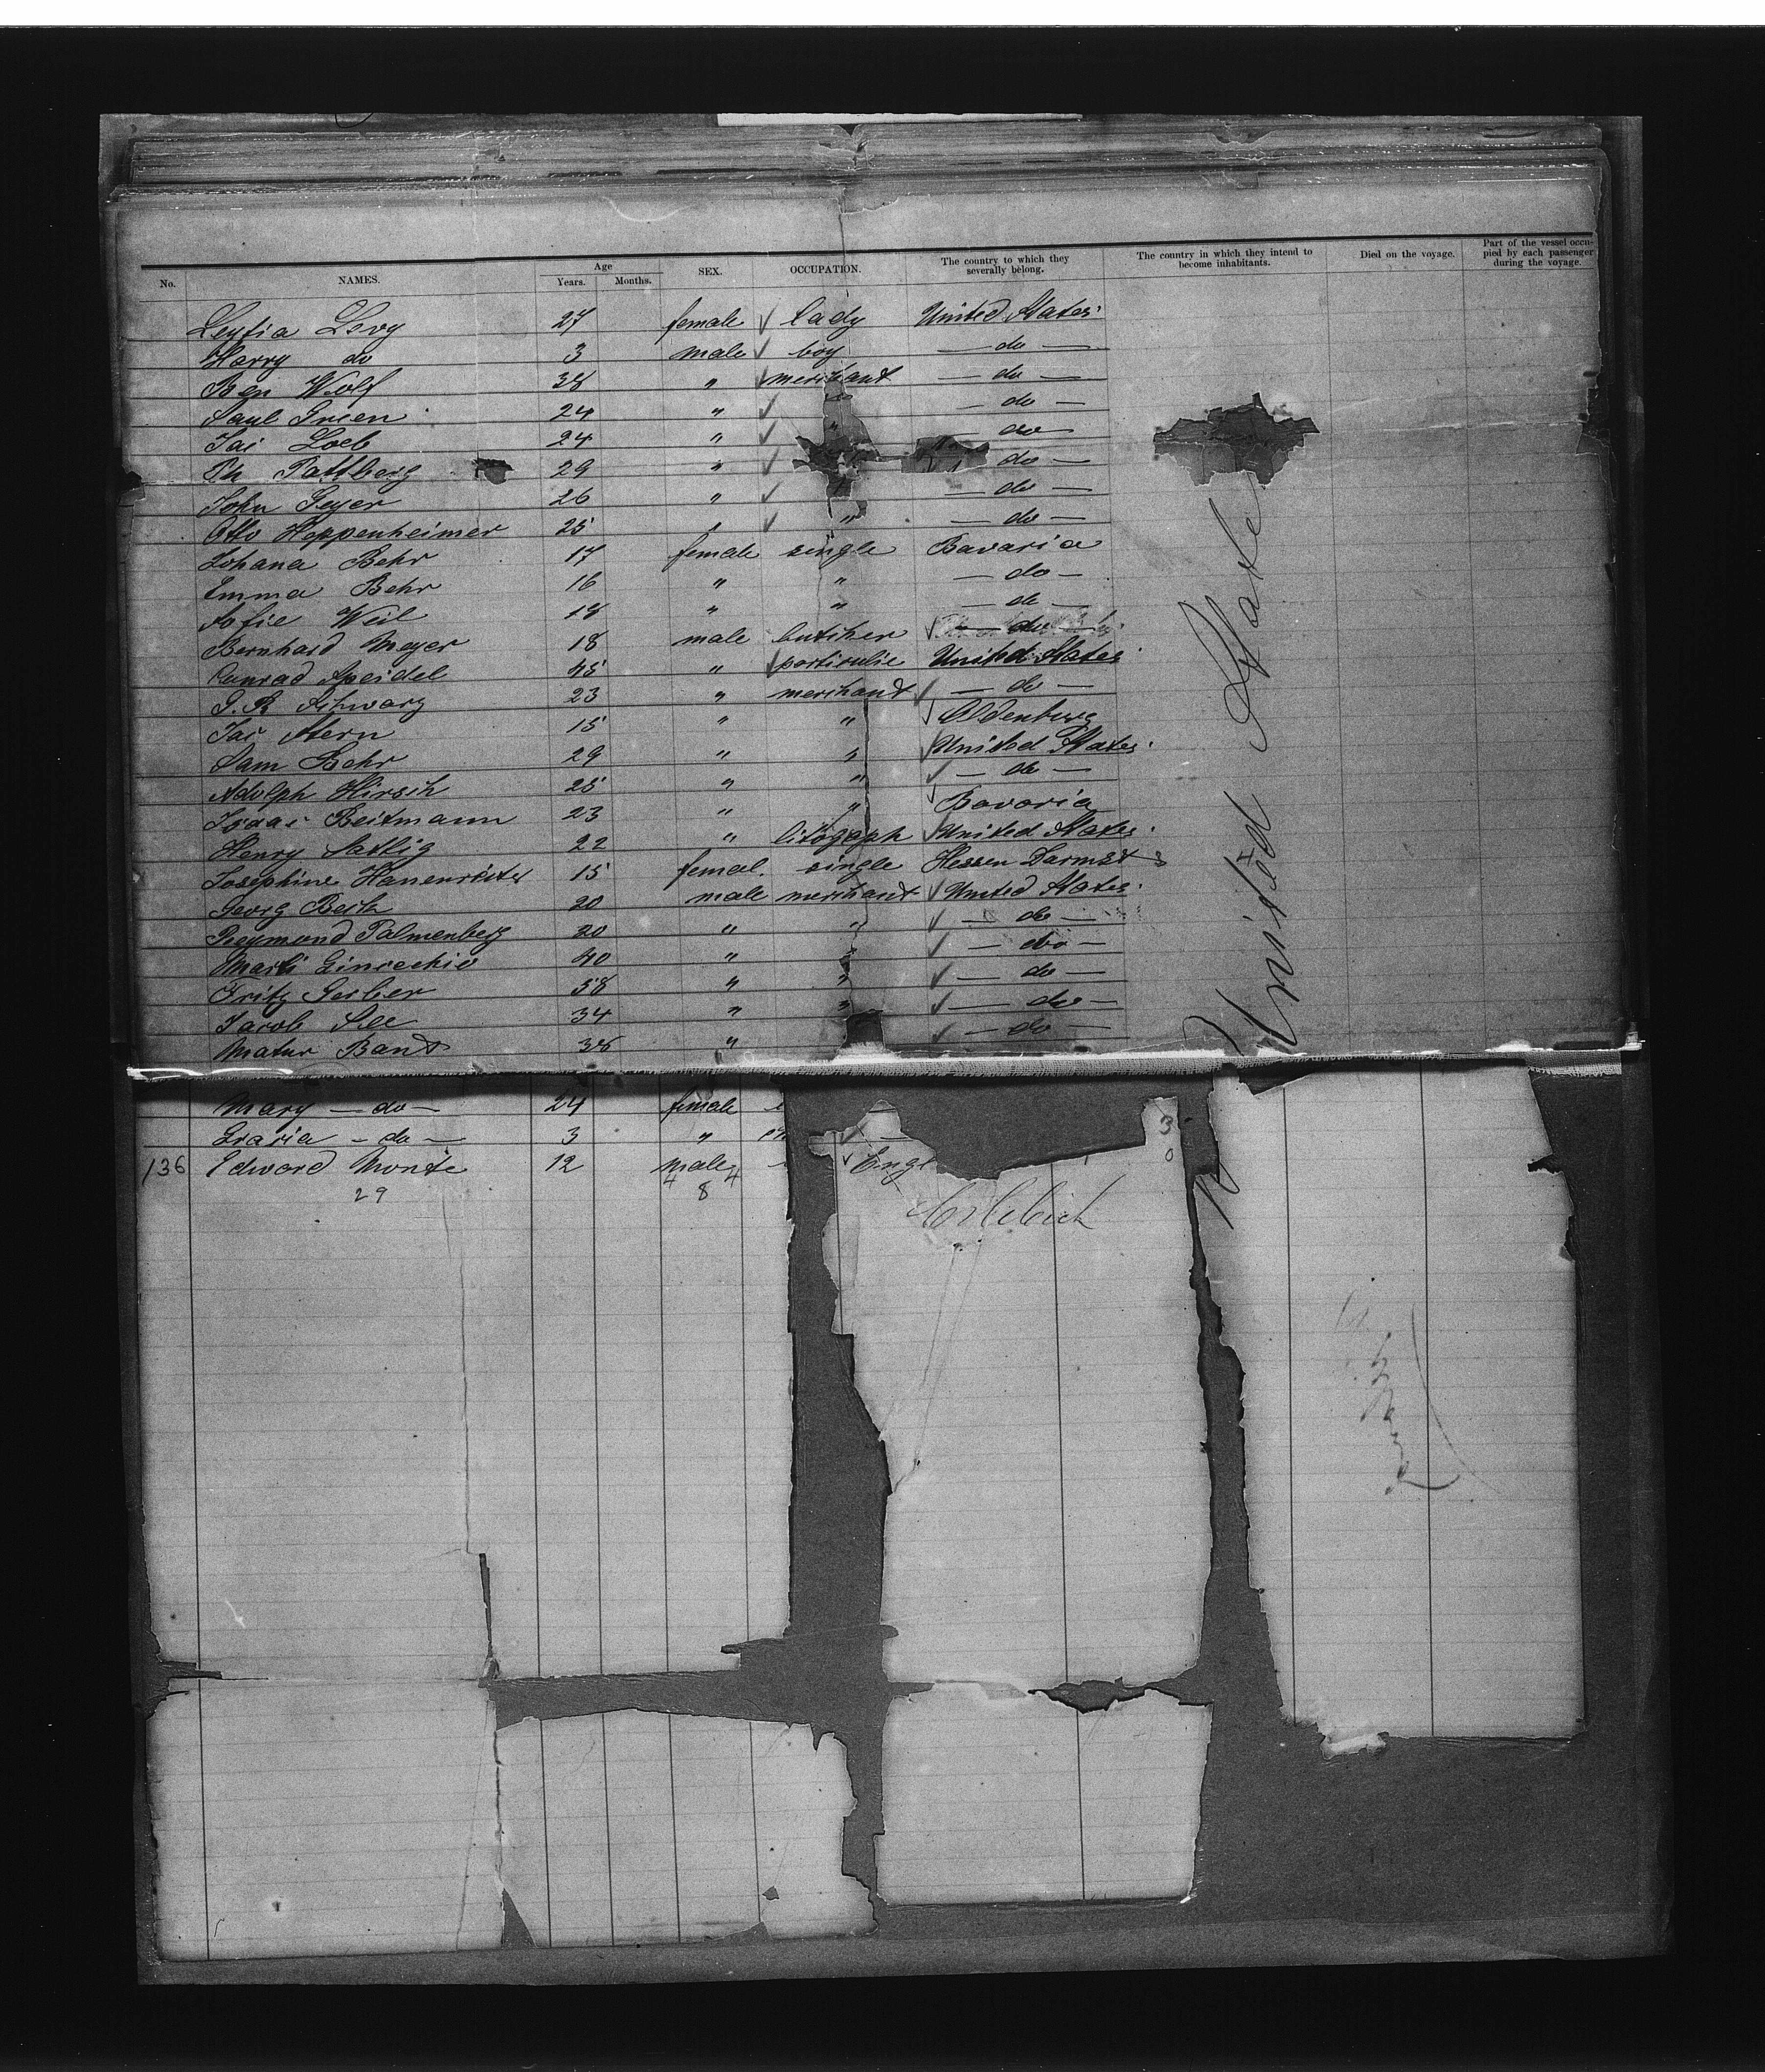 No. NAMES. Age Years. Months. SEX. OCCUPATION. The country to which they severally belong. The country in which they intend to become inhabitants. Died on the voyage. Part of the vessel occupied by each passenger during the voyage.
Levy 27 female lady United States
Harry do 3 male boy do
Ben Wolf 38 " merchant do
Saul Green 24 " do
Jac Loeb 24 " do
Ph Pattberg 29 " do
John Geyer 26 " do
Otto Hoppenheimer 25 " " do
Johana Behr 17 female single Bavaria
Emma Behr 16 " " do
Sofie Weil 18 " " do
Bernhard Meyer 18 male butcher do
Conrad Speidel 45 " particulie United States
S. B Schwarz 23 " merchant do
Jac Stern 15 " " Oldenburg
Sam Behr 29 " " United States
Adolph Hirsch 25 " " do
Isaac Beitmann 23 " " Bavaria
Henry Sattig 22 " litograph United States
Josephine 15 female single Hessen Darmst
Georg 20 male merchant United States
Reymond Palmenberg 20 " " do
40 " " do
Fritz Gerber 38 " " do
Jacob See 34 " " do
Band 38 " do
Mary do 24 female
do 3 "
136 Edward Monte 12 male Engl
29 4 8 4
3
0
United States